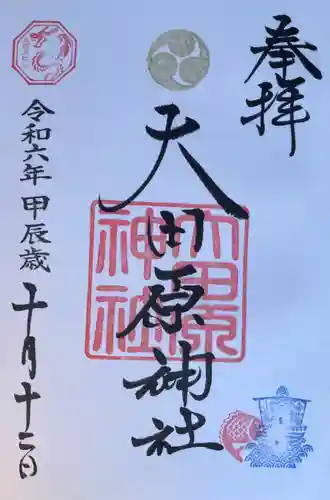 奉拝
大田原神社
大田原
神社
令和六年甲辰歳
十月十二日